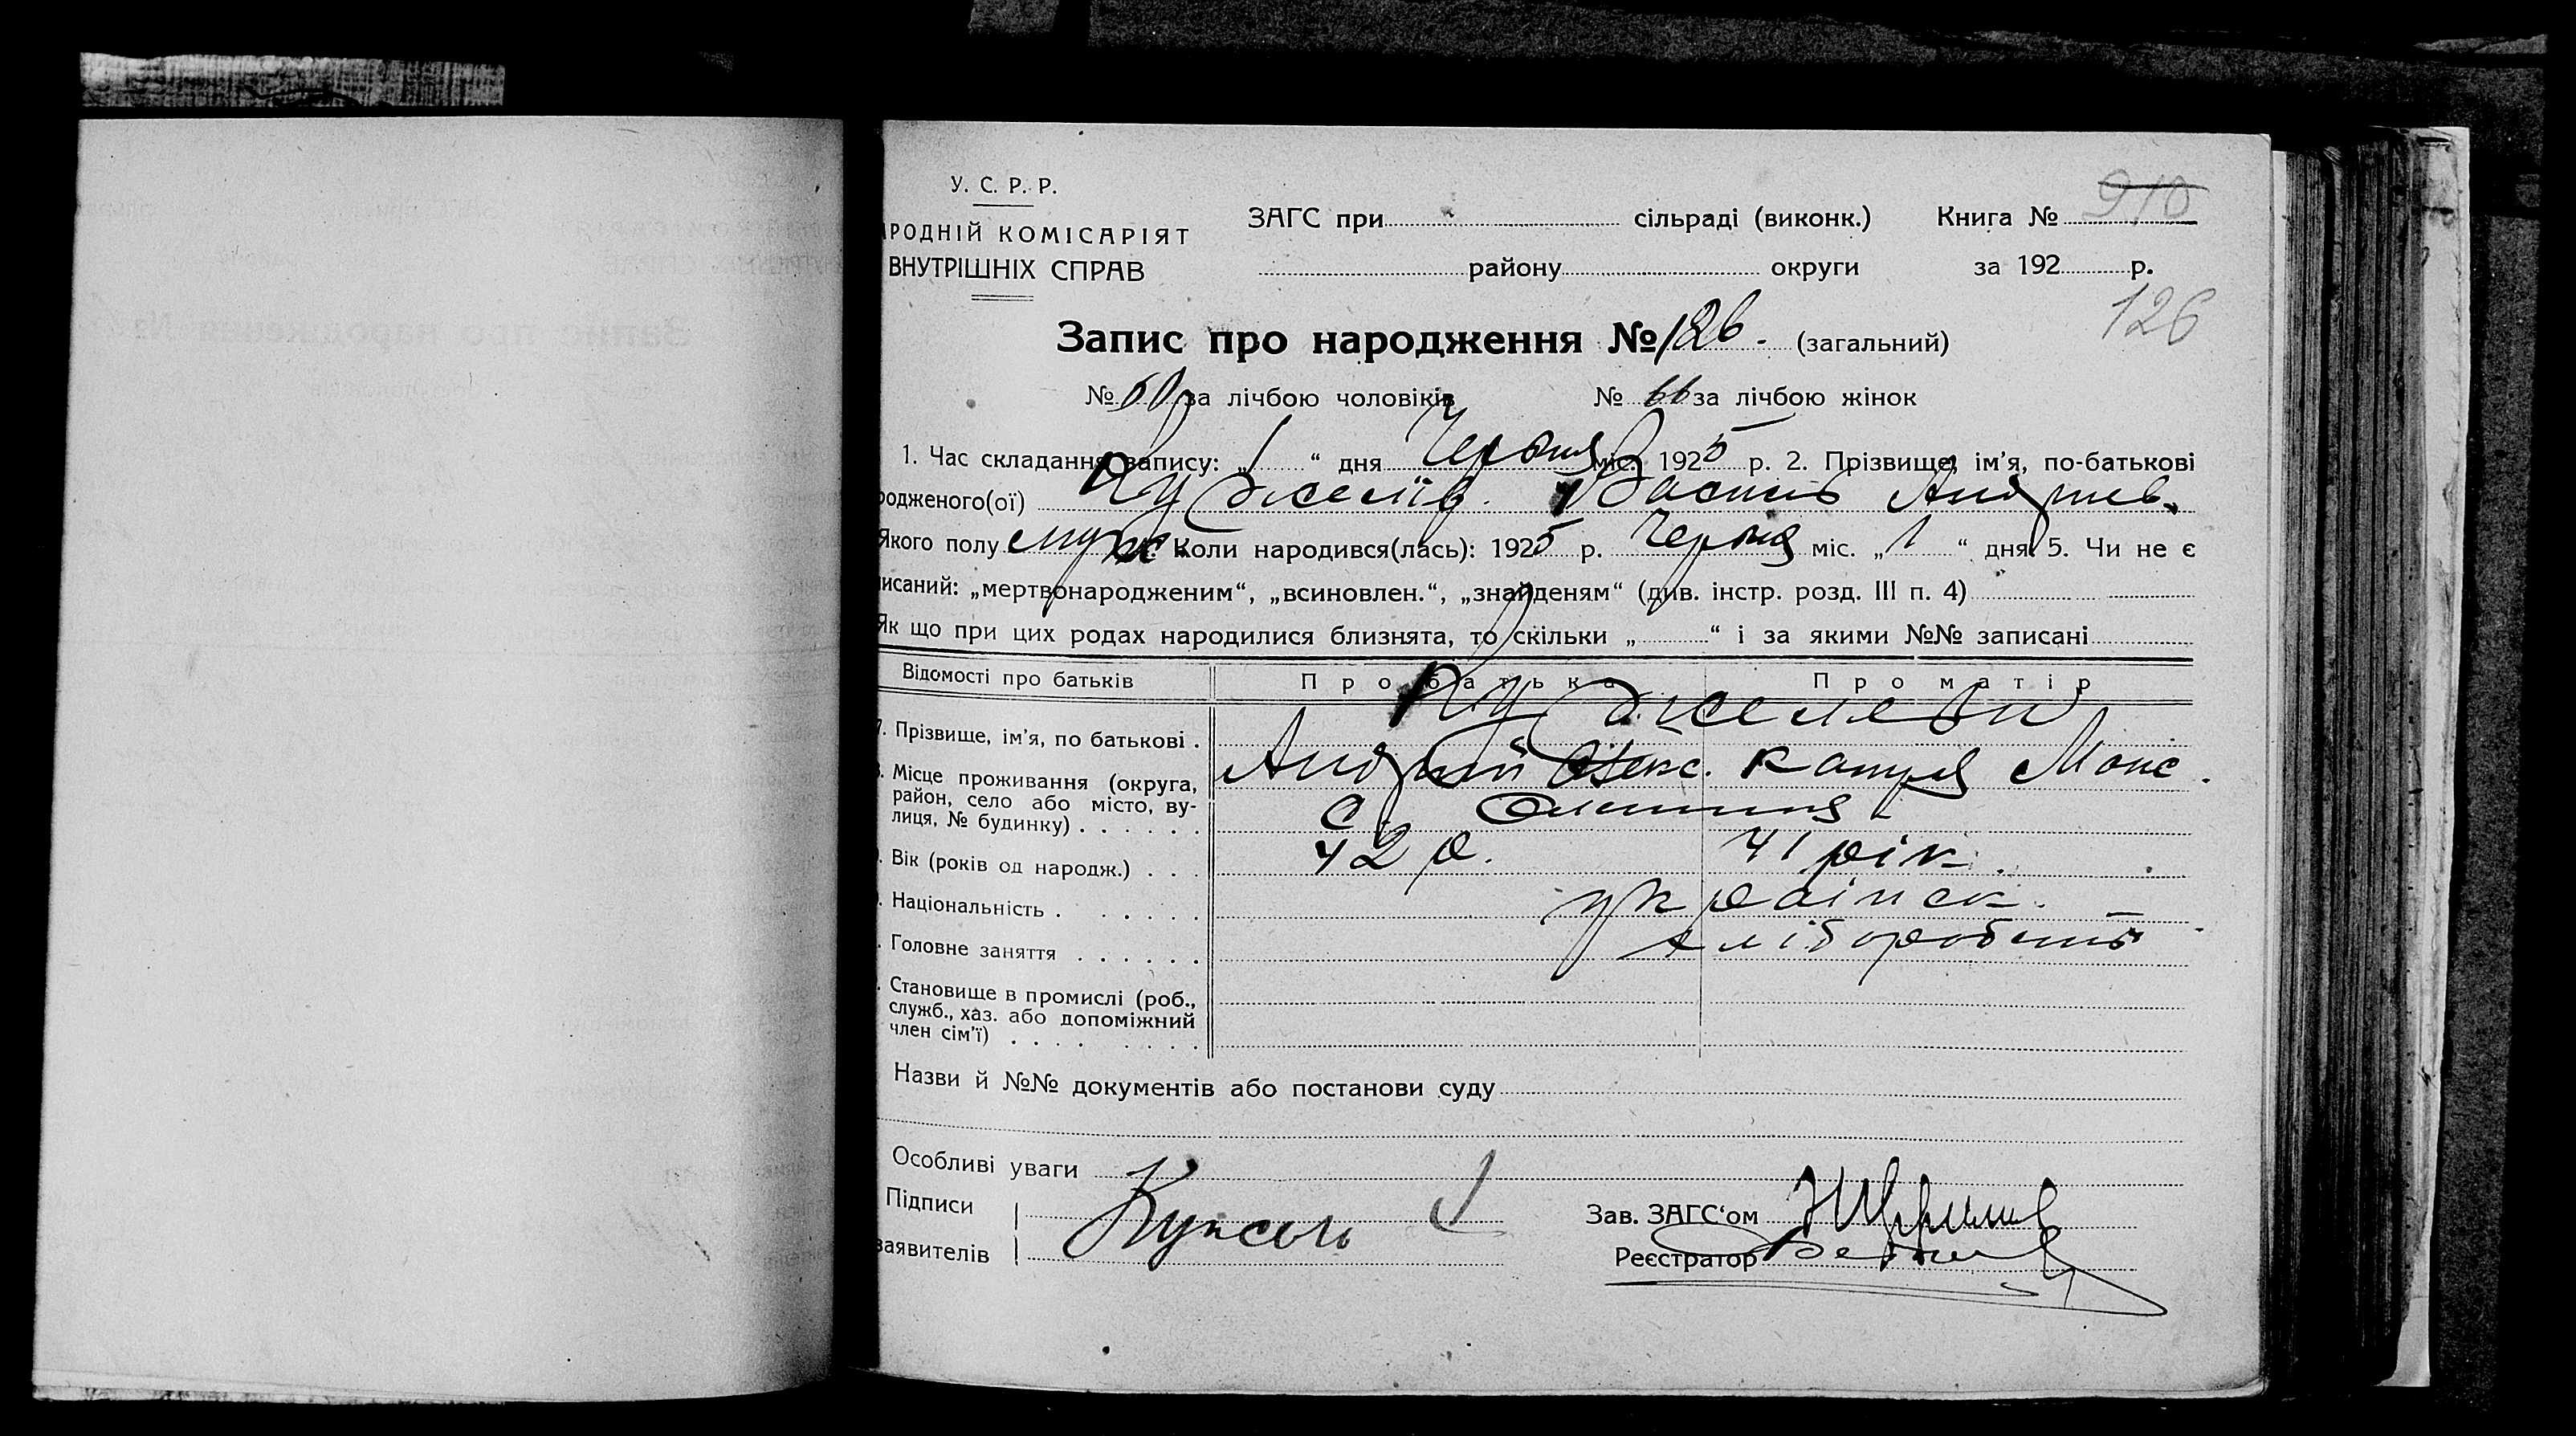 У. С. Р. Р.
РОДНІЙ КОМІСАРІЯТ
ВНУТРІШНІХ СПРАВ
ЗАГС при сільраді (виконк.) Книга № 910
району округи за 192 р.
126
Запис про народження № 126. (загальний)
№ 60 за лічбою чоловіків № 66 за лічбою жінок
1. Час складання запису: „1“ дня Червня міс. 1925 р. 2. Прізвище, ім'я, по-батькові
родженого(ої) Василь Андриев.
Якого полу муж. Коли народився(лась): 1925 р. Червня міс. „1“ дня 5. Чи не є
писаний: „мертвонародженим“, „всиновлен.“, „знайденям“ (див. інстр. розд. III п. 4)
Як що при цих родах народилися близнята, то скільки „ “ і за якими №№ записані
Відомості про батьків Про батька Про матір
7. Прізвище, ім'я, по батькові .
Андрій Олекс. Макс.
8. Місце проживання (округа,
район, село або місто, ву-
лиця, № будинку) . . . . . . С.
. Вік (років од народж.) . . . 42 р. 41 рік.
. Національність . . . . . . українск.
. Головне заняття . . . . . . хлібороби
. Становище в промислі (роб.,
служб., хаз. або допоміжний
член сім'ї) . . . . . . . .
Назви й №№ документів або постанови суду
Особливі уваги
Підписи
заявителів
Зав. ЗАГС'ом
Реєстратор